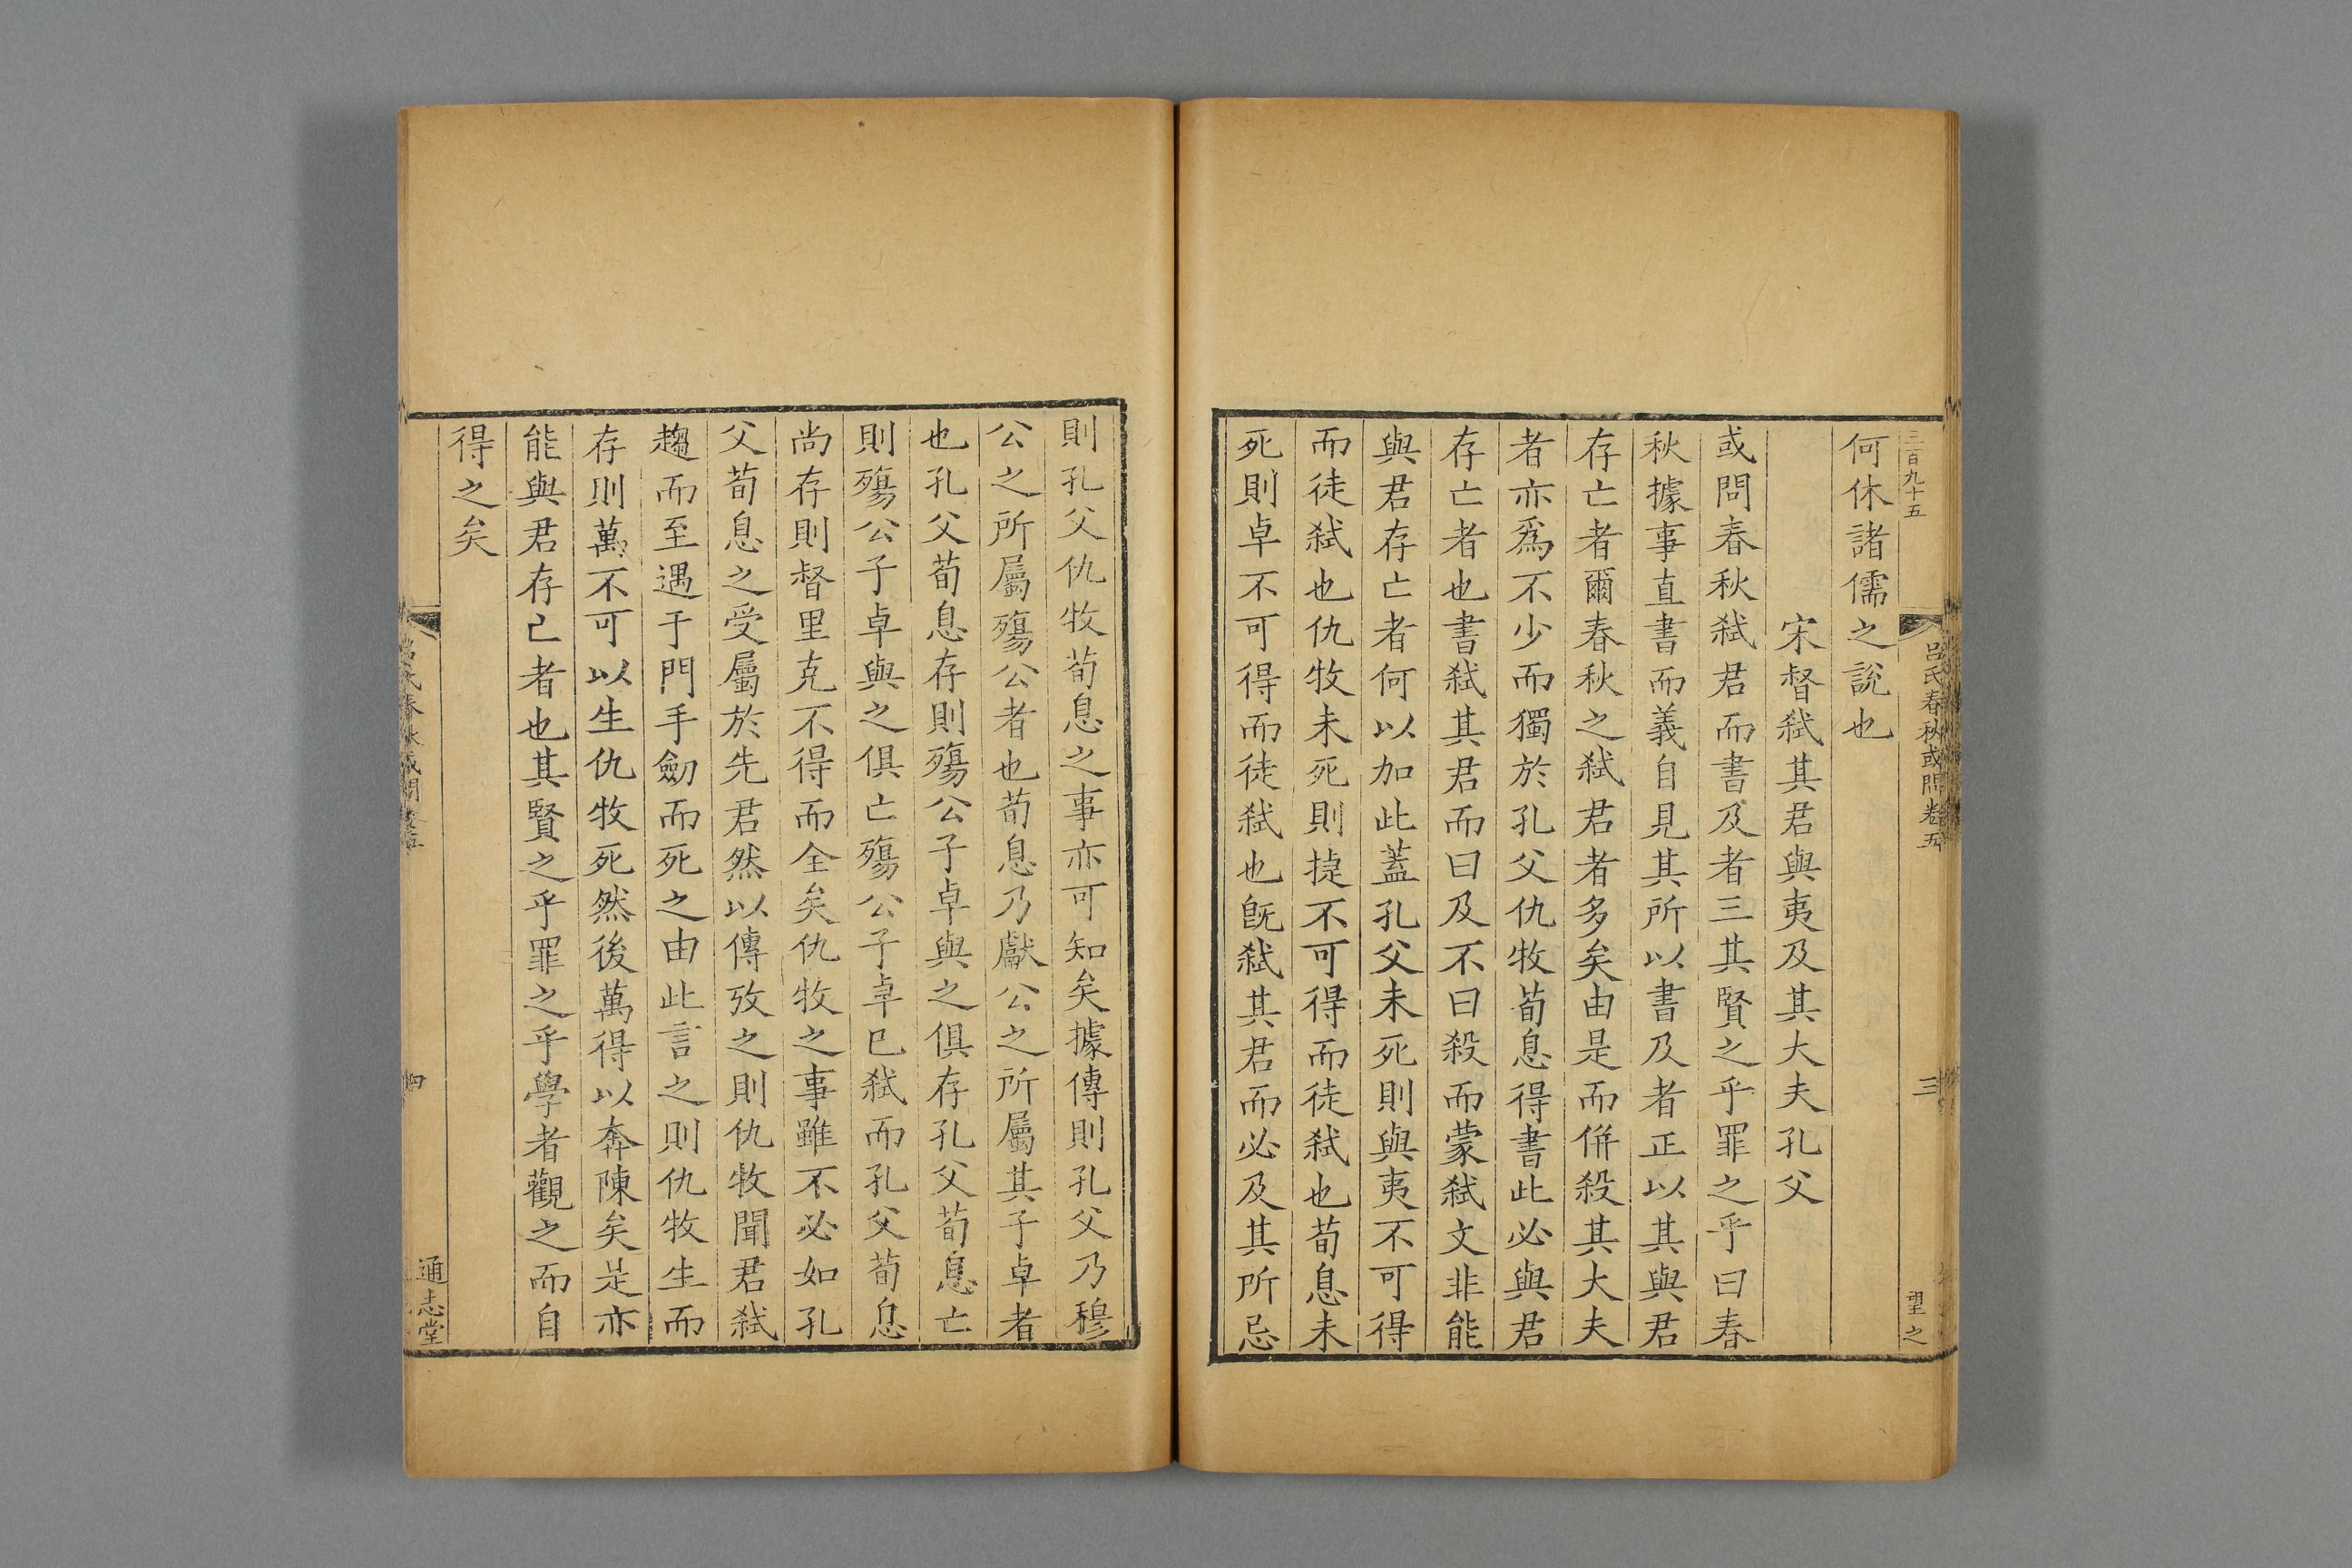 三百九十五
呂氏春秋或問卷五
三
望之
何休諸儒之說也
宋督弑其君與夷及其大夫孔父
或問春秋弑君而書及者三其賢之乎罪之乎曰春
秋據事直書而義自見其所以書及者正以其與君
存亡者爾春秋之弑君者多矣由是而併殺其大夫
者亦爲不少而獨於孔父仇牧荀息得書此必與君
存亡者也書弑其君而曰及不曰殺而蒙弑文非能
與君存亡者何以加此蓋孔父未死則與夷不可得
而徒弑也仇牧未死則㨗不可得而徒弑也荀息未
死則卓不可得而徒弑也旣弑其君而必及其所忌
則孔父仇牧荀息之事亦可知矣據傳則孔父乃穆
公之所屬殤公者也荀息乃獻公之所屬其子卓者
也孔父荀息存則殤公子卓與之俱存孔父荀息亡
則殤公子卓與之俱亡殤公子卓已弑而孔父荀息
尚存則督里克不得而全矣仇牧之事雖不必如孔
父荀息之受屬於先君然以傳攷之則仇牧聞君弑
趨而至遇于門手劒而死之由此言之則仇牧生而
存則萬不可以生仇牧死然後萬得以奔陳矣是亦
能與君存亡者也其賢之乎罪之乎學者觀之而自
得之矣
呂氏春秋或問卷五
四
通志堂